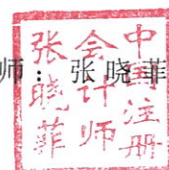 师：张晓菲
中国注册
会计师
张晓菲